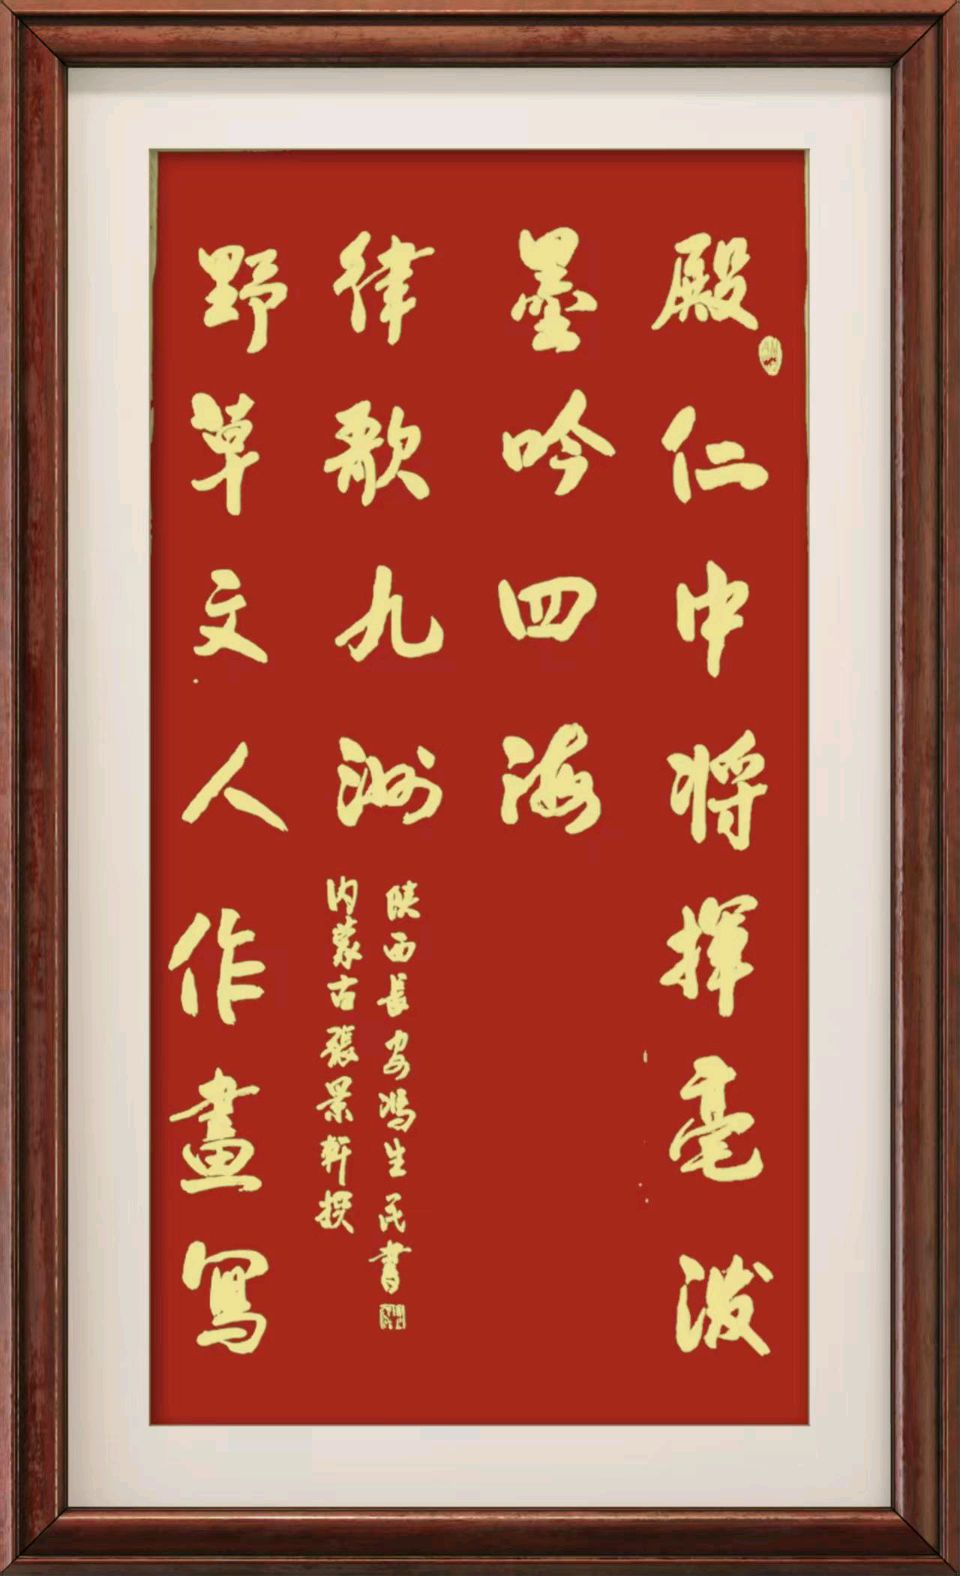 殿仁中将揮毫泼
墨吟四海
野草文人作畫寫
律歌九洲
内蒙古張景軒撰
陕西長安馮生民書